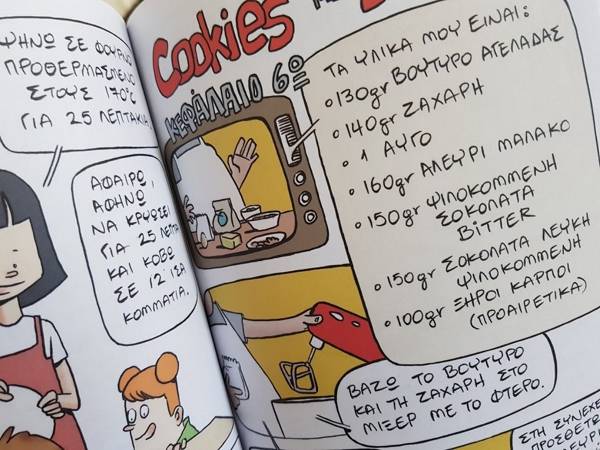 ΨΗΝΩ ΣΕ ΦΟΥΡΝΟ
ΠΡΟΘΕΡΜΑΣΜΕΝΟ
ΣΤΟΥΣ 170°C
ΓΙΑ 25 ΛΕΠΤΑΚΙΑ
ΑΦΑΙΡΩ,
ΑΦΗΝΩ,
ΝΑ ΚΡΥΩΣΕΙ
ΓΙΑ 25 ΛΕΠΤΑ
ΚΑΙ ΚΟΒΩ
ΣΕ 12 ΙΣΑ
ΚΟΜΜΑΤΙΑ.
Cookies
ΚΕΦΑΛΑΙΟ 6º
ΤΑ ΥΛΙΚΑ ΜΟΥ ΕΙΝΑΙ:
• 130gr ΒΟΥΤΥΡΟ ΑΓΕΛΑΔΑΣ
• 140gr ΖΑΧΑΡΗ
• 1 ΑΥΓΟ
• 160gr ΑΛΕΥΡΙ ΜΑΛΑΚΟ
• 150gr ΨΙΛΟΚΟΜΜΕΝΗ
ΣΟΚΟΛΑΤΑ
BITTER
• 150gr ΣΟΚΟΛΑΤΑ ΛΕΥΚΗ
ΨΙΛΟΚΟΜΜΕΝΗ
• 100gr ΞΗΡΟΙ ΚΑΡΠΟΙ
(ΠΡΟΑΙΡΕΤΙΚΑ)
ΒΑΖΩ ΤΟ ΒΟΥΤΥΡΟ
ΚΑΙ ΤΗ ΖΑΧΑΡΗ ΣΤΟ
ΜΙΞΕΡ ΜΕ ΤΟ ΦΤΕΡΟ.
ΣΤΗ ΣΥΝΕΧΕ
ΠΡΟΣΘΕΤ